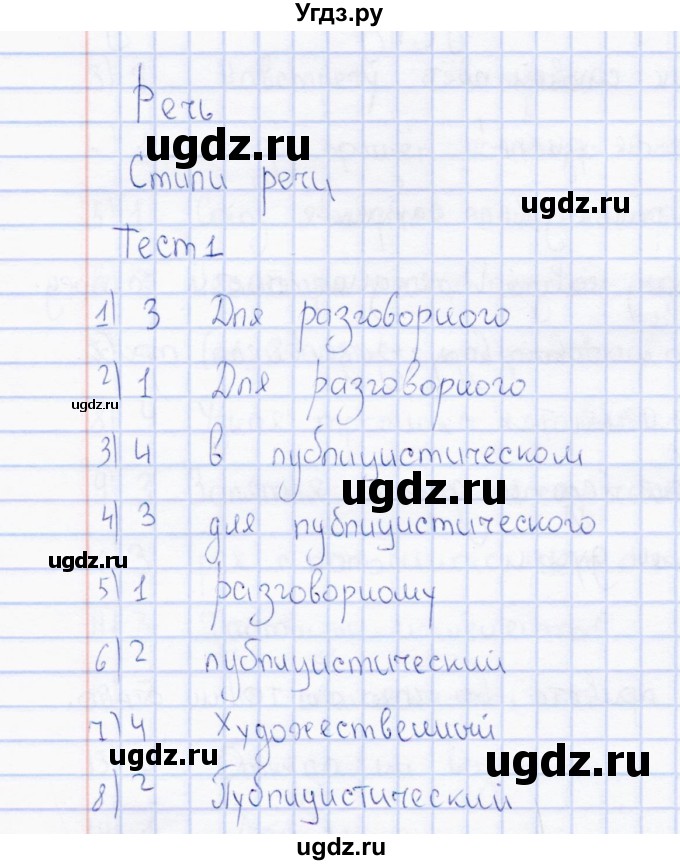 Угдз.ру
Речь
ugdz.ru
Стили речи
ugdz.ru
Тест 1
1) 3 Для разговорного
2) 1 Для разговорного
ugdz.ru
3) 4 в публицистическом
ugdz.ru
4) 3 для публицистического
ugdz.ru
5) 1 разговорному
ugdz.ru
6) 2 публицистический
7) 4 Художественный
ugdz.ru
8) 2 Публицистический
ugdz.ru